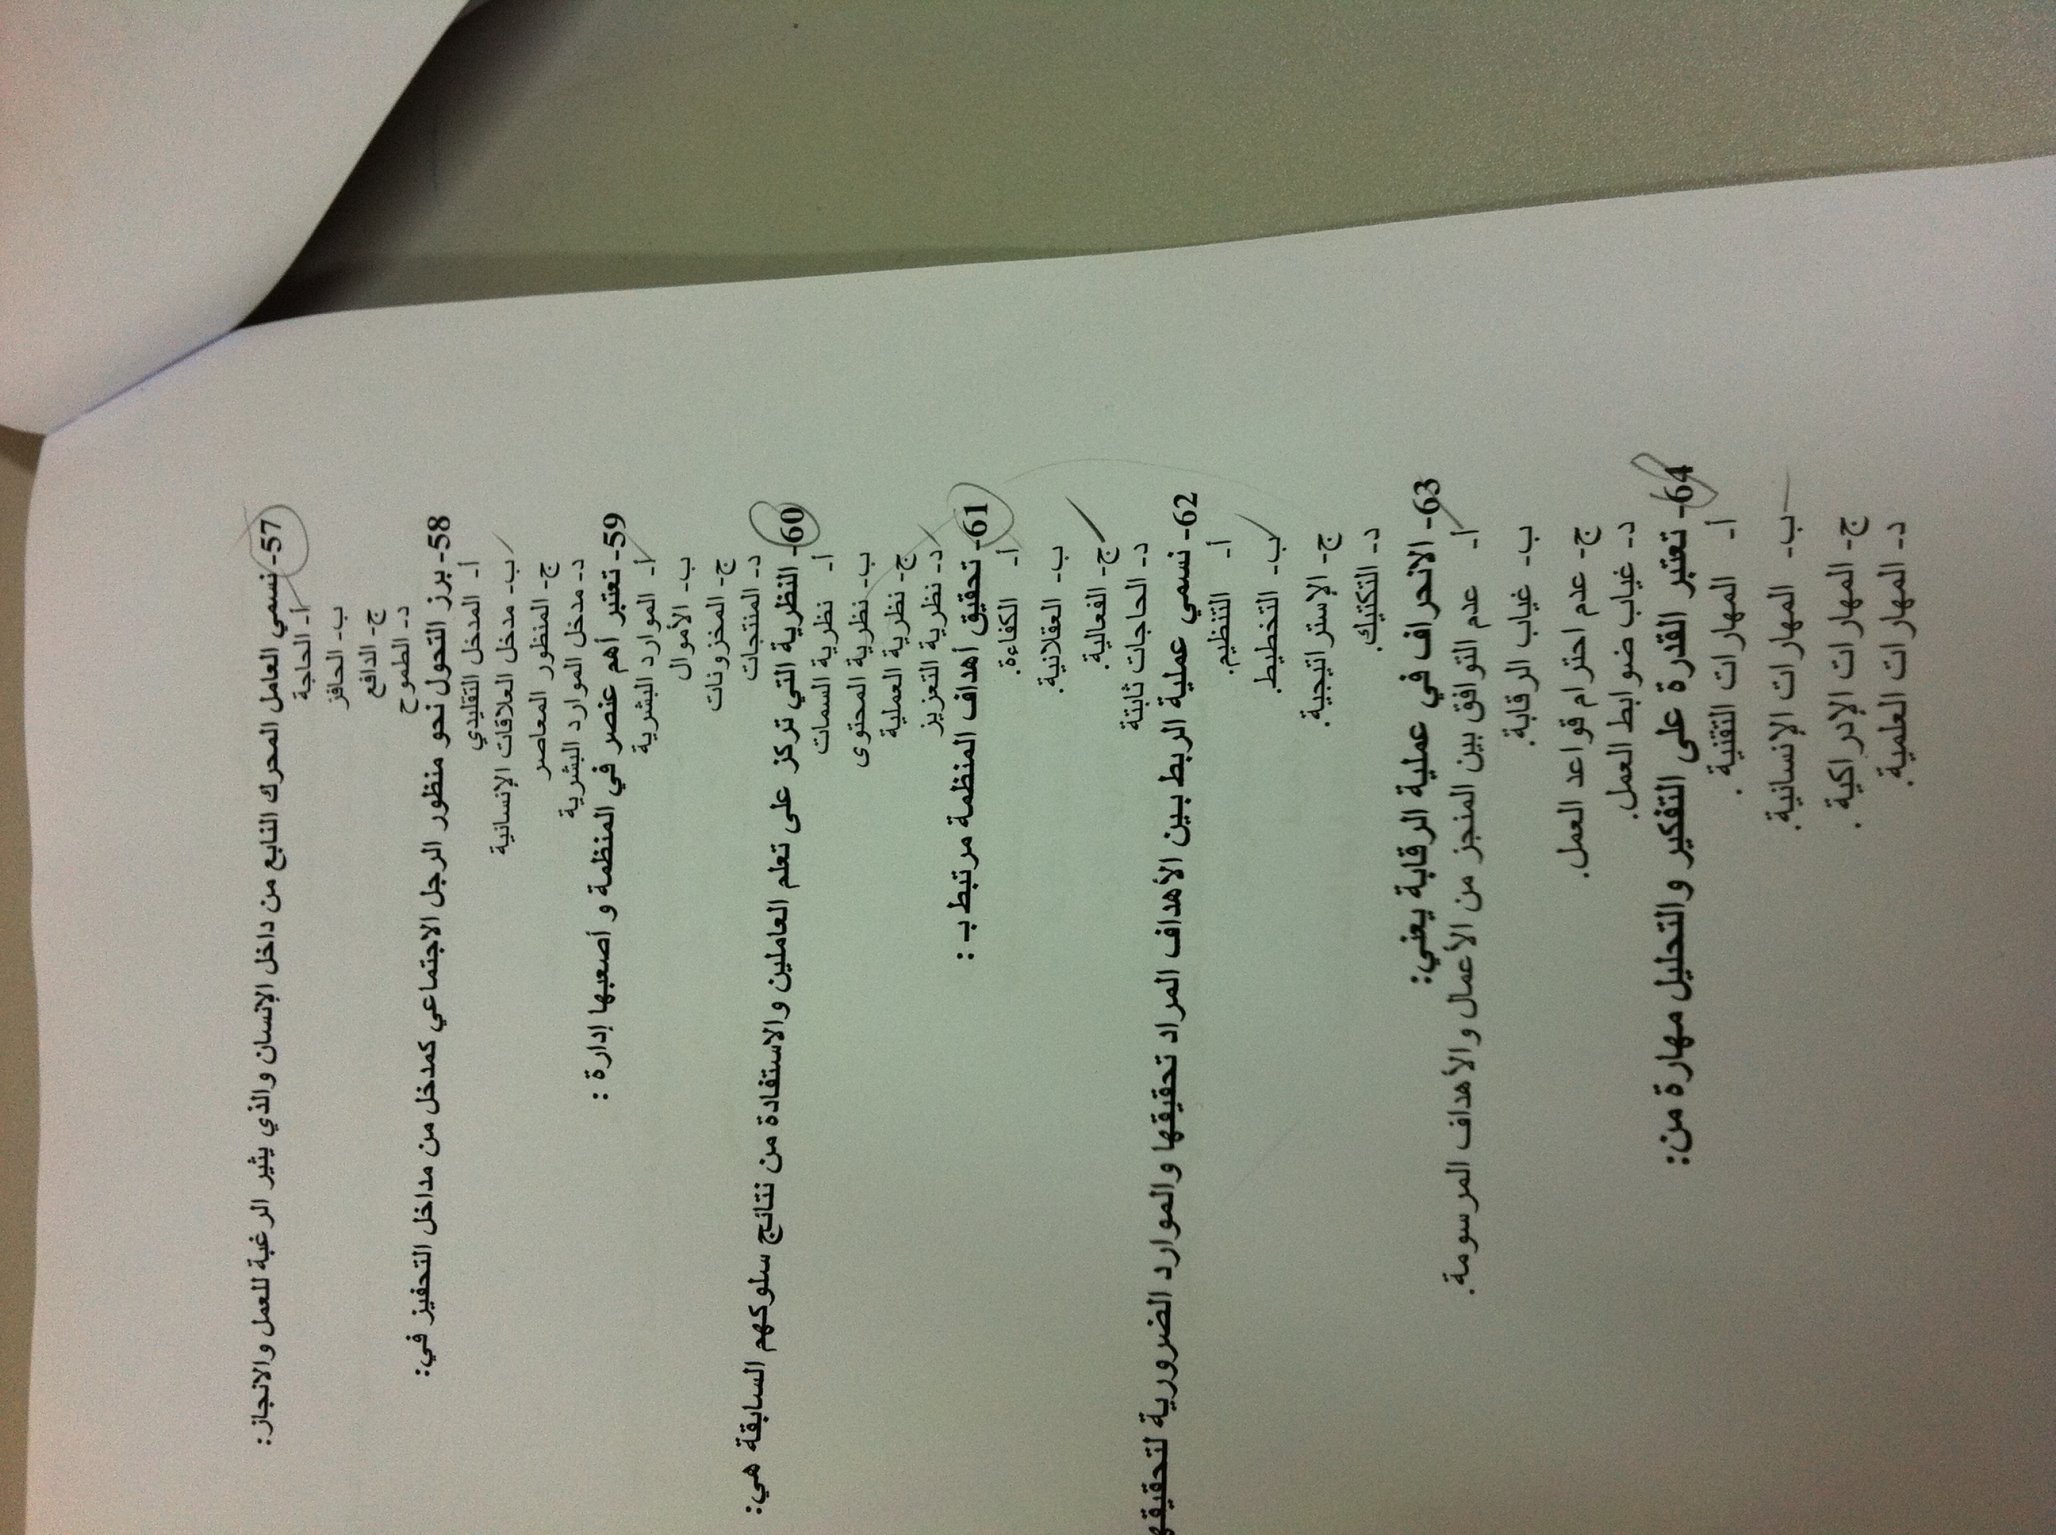 57- نسمي العامل المحرك النابع من داخل الإنسان والذي يثير الرغبة للعمل والانجاز:
أ- الحاجة
ب- الحافز
ج- الدافع
د- الطموح
58- برز التحول نحو منظور الرجل الاجتماعي كمدخل من مداخل التحفيز في:
أ- المدخل التقليدي
ب- مدخل العلاقات الإنسانية
ج- المنظور المعاصر
د- مدخل الموارد البشرية
59- تعتبر أهم عنصر في المنظمة و أصعبها إدارة :
أ- الموارد البشرية
ب- الأموال
ج- المخزونات
د- المنتجات
60- النظرية التي تركز على تعلم العاملين والاستفادة من نتائج سلوكهم السابقة هي:
أ- نظرية السمات
ب- نظرية المحتوى
ج- نظرية العملية
د- نظرية التعزيز
61- تحقيق أهداف المنظمة مرتبط ب :
أ- الكفاءة.
ب- العقلانية.
ج- الفعالية.
د- الحاجات ثابتة
62- نسمي عملية الربط بين الأهداف المراد تحقيقها والموارد الضرورية لتحقيقها
أ- التنظيم.
ب- التخطيط.
ج- الإستراتيجية.
د- التكتيك.
63- الانحراف في عملية الرقابة يعني:
أ- عدم التوافق بين المنجز من الأعمال والأهداف المرسومة.
ب- غياب الرقابة.
ج- عدم احترام قواعد العمل.
د- غياب ضوابط العمل.
64- تعتبر القدرة على التفكير والتحليل مهارة من:
أ- المهارات التقنية .
ب- المهارات الإنسانية.
ج- المهارات الإدراكية .
د- المهارات العلمية.